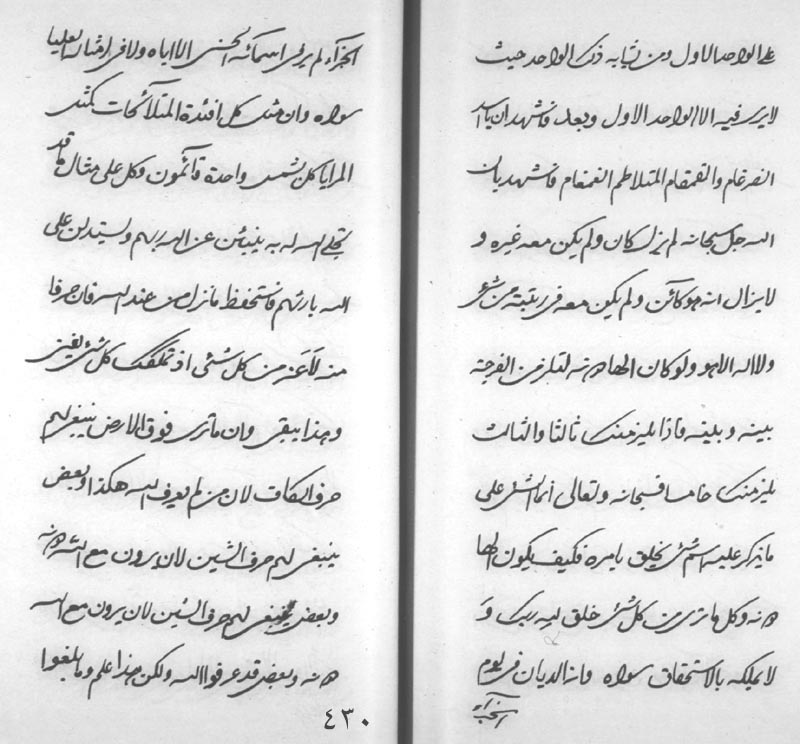 على الواحد الاول ومن يشابه ذلك الواحد حيث
لا يرى فيه الا الواحد الاول وبعد فاشهد ان يا اسد
الضرغام والقمقام المتلاطم الغمغام فاشهد بان
الله جل سبحانه لم يزل كان ولم يكن معه غيره و
لا يزال انه هو كائن ولم يكن معه فى رتبته من شئ
ولا اله الا هو ولو كان الها دونه لتلزمن الفرجة
بينه وبينه فاذا يلزمنك ثالثا والثالث
يلزمنك خامسا فسبحانه وتعالى
ما يذكر عليه اسم شئ يخلق بامره فكيف يكون الها
دونه وكل ما ترى من كل شئ خلق لديه ربك و
لا يملكه بالاستحقاق سواه وانه الديان فى يوم
الجزاء
الجزاء لم ير فى اسمائه الحسنى الا اياه ولا فى امثاله العليا
سواه وان مثل كل افئدة المتلألئات كمثل
المرايا كلن لشمس واحدة قائمون وكل على مثال ما قد
تجلى الله له به ينبئن عن الله ربهم وليستدلن على
الله بارئهم فاستحفظ ما نزل من عند الله فان حرفا
منه لأعز من كل شئ اذ تملكك كل شئ يفنى
وهذا يبقى وان ما ترى فوق الارض ينبغى لهم
حرف الكاف لان من لم يعرف الله هكذا وبعض
ينبغى لهم حرف الشين لان يرون مع الله دونه
وبعض ينبغى لهم حرف الشين لان يرون مع الله
دونه وبعض قد عرفوا الله ولكن هذا علم وما بلغوا
٤٣٠